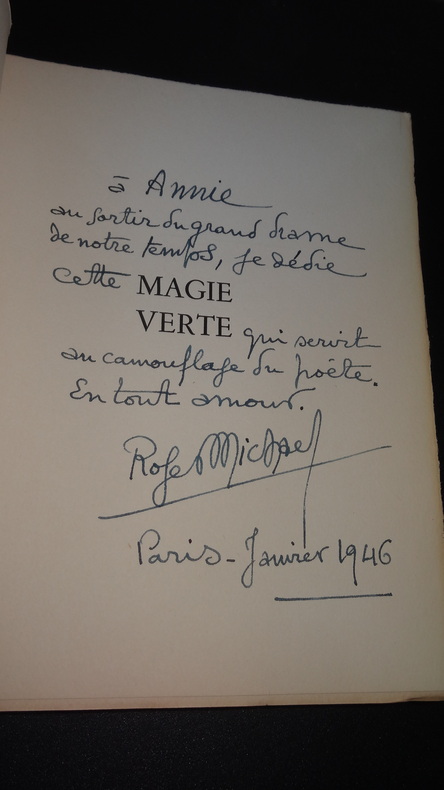 à Annie
au sortir du grand drame
de notre temps, je dédie
cette MAGIE
VERTE qui servit
au camouflage du poète.
En tout amour.
Roger Michael
Paris - Janvier 1946